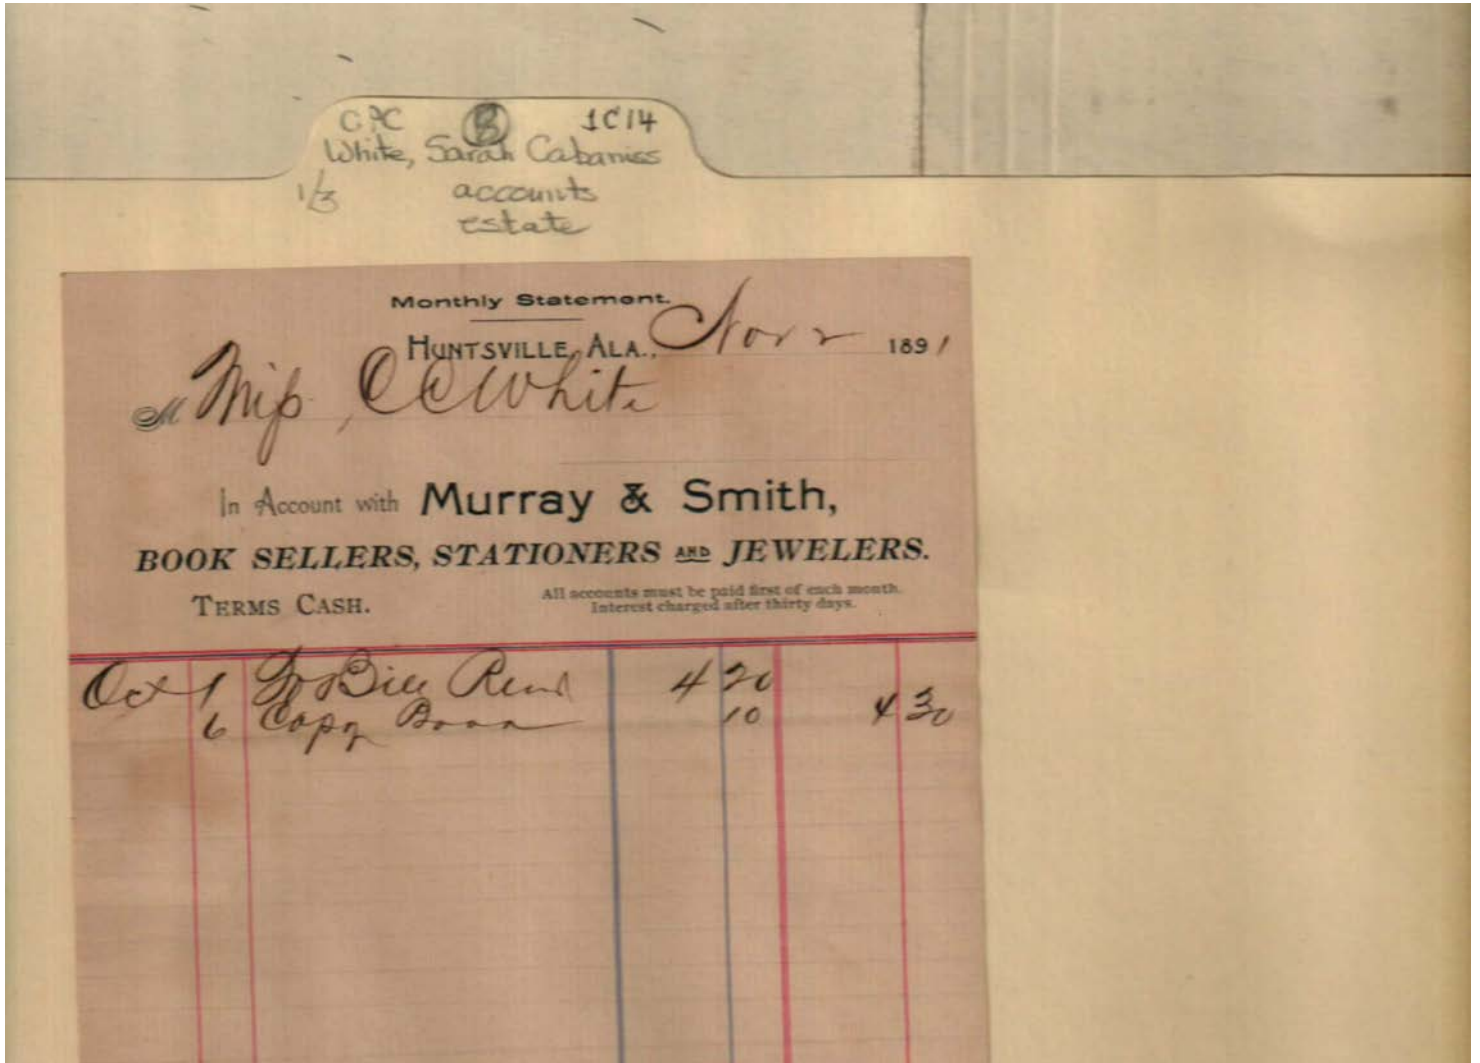 CPC B 1C14
White, Sarah Cabaniss
1/3 accounts
estate
Monthly Statement.
HUNTSVILLE, ALA., Nov 2 1891
M Miss C C White
In Account with Murray & Smith,
BOOK SELLERS, STATIONERS AND JEWELERS.
TERMS CASH. All accounts must be paid first of each month.
Interest charged after thirty days.
Oct 1 To Bill Rend 4 20
6 Copy Book 10 4 30